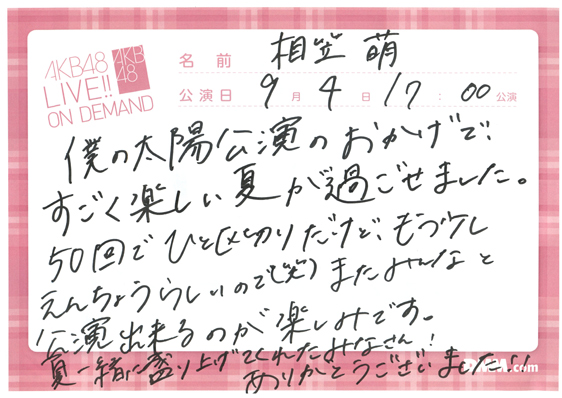 AKB48
LIVE!!
ON DEMAND
AKB
48
名前 相笠 萌
公演日 9月4日 17:00公演
僕の太陽公演のおかげで、
すごく楽しい夏が過ごせました。
50回でひと区切りだけど、もう少し
えんちょうらしいので(笑)またみんなと
公演出来るのが楽しみです。
夏一緒に盛り上げてくれたみなさん!
ありがとうございました!!
.com